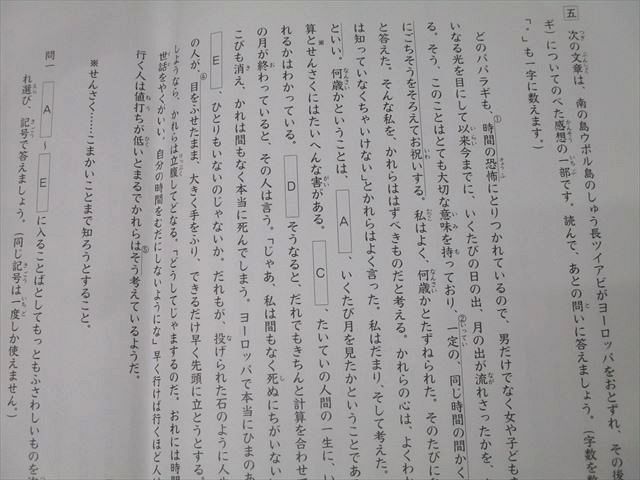 五 次の文章は、南の島ウポル島のしゅう長ツイアビがヨーロッパをおとずれ、その後
ギ）についてのべた感想の一部です。読んで、あとの問いに答えましょう。（字数を数
「。」も一字に数えます。）
どのパパラギも、①時間の恐怖にとりつかれているので、男だけでなく女や子どもま
いなる光を目にして以来今までに、いくたびの日の出、月の出が流れさったかを、
る。そう、このことはとても大切な意味を持っており、②一定の、同じ時間の間かく
にごちそうをそろえてお祝いする。私はよく、何歳かとたずねられた。そのたびに
と答えた。そんな私を、かれらははずべきものだと考える。かれらの心は、よくわか
は知っていなくちゃいけない」とかれらはよく言った。私はだまり、そして考えた。
といい。何歳かということは、 A 、いくたび月を見たかということであ
算とせんさく※にはたいへんな害がある。 C 、たいていの人間の一生に、い
れるかはわかっている。 D そうなると、だれでもきちんと計算を合わせて
の月が終わっていると、その人は言う。「じゃあ、私は間もなく死ぬにちがいない
こびも消え、かれは間もなく本当に死んでしまう。ヨーロッパで本当にひまのあ
E 、ひとりもいないのじゃないか。だれもが、投げられた石のように人生
の人が④目をふせたまま、大きく手をふり、できるだけ早く先頭に立とうとする。
しようなら、かれらは立腹してどなる。「どうしてじゃまするのだ。おれには時間
世話をやくがいい。自分の時間をむだにしないようにな」早く行けば行くほど人は
行く人は値打ちが低いとまるでかれらは⑤そう考えているようだ。
※せんさく……こまかいことまで知ろうとすること。
問一 A ～ E に入ることばとしてもっともふさわしいものを
れ選び、記号で答えましょう。（同じ記号は一度しか使えません。）